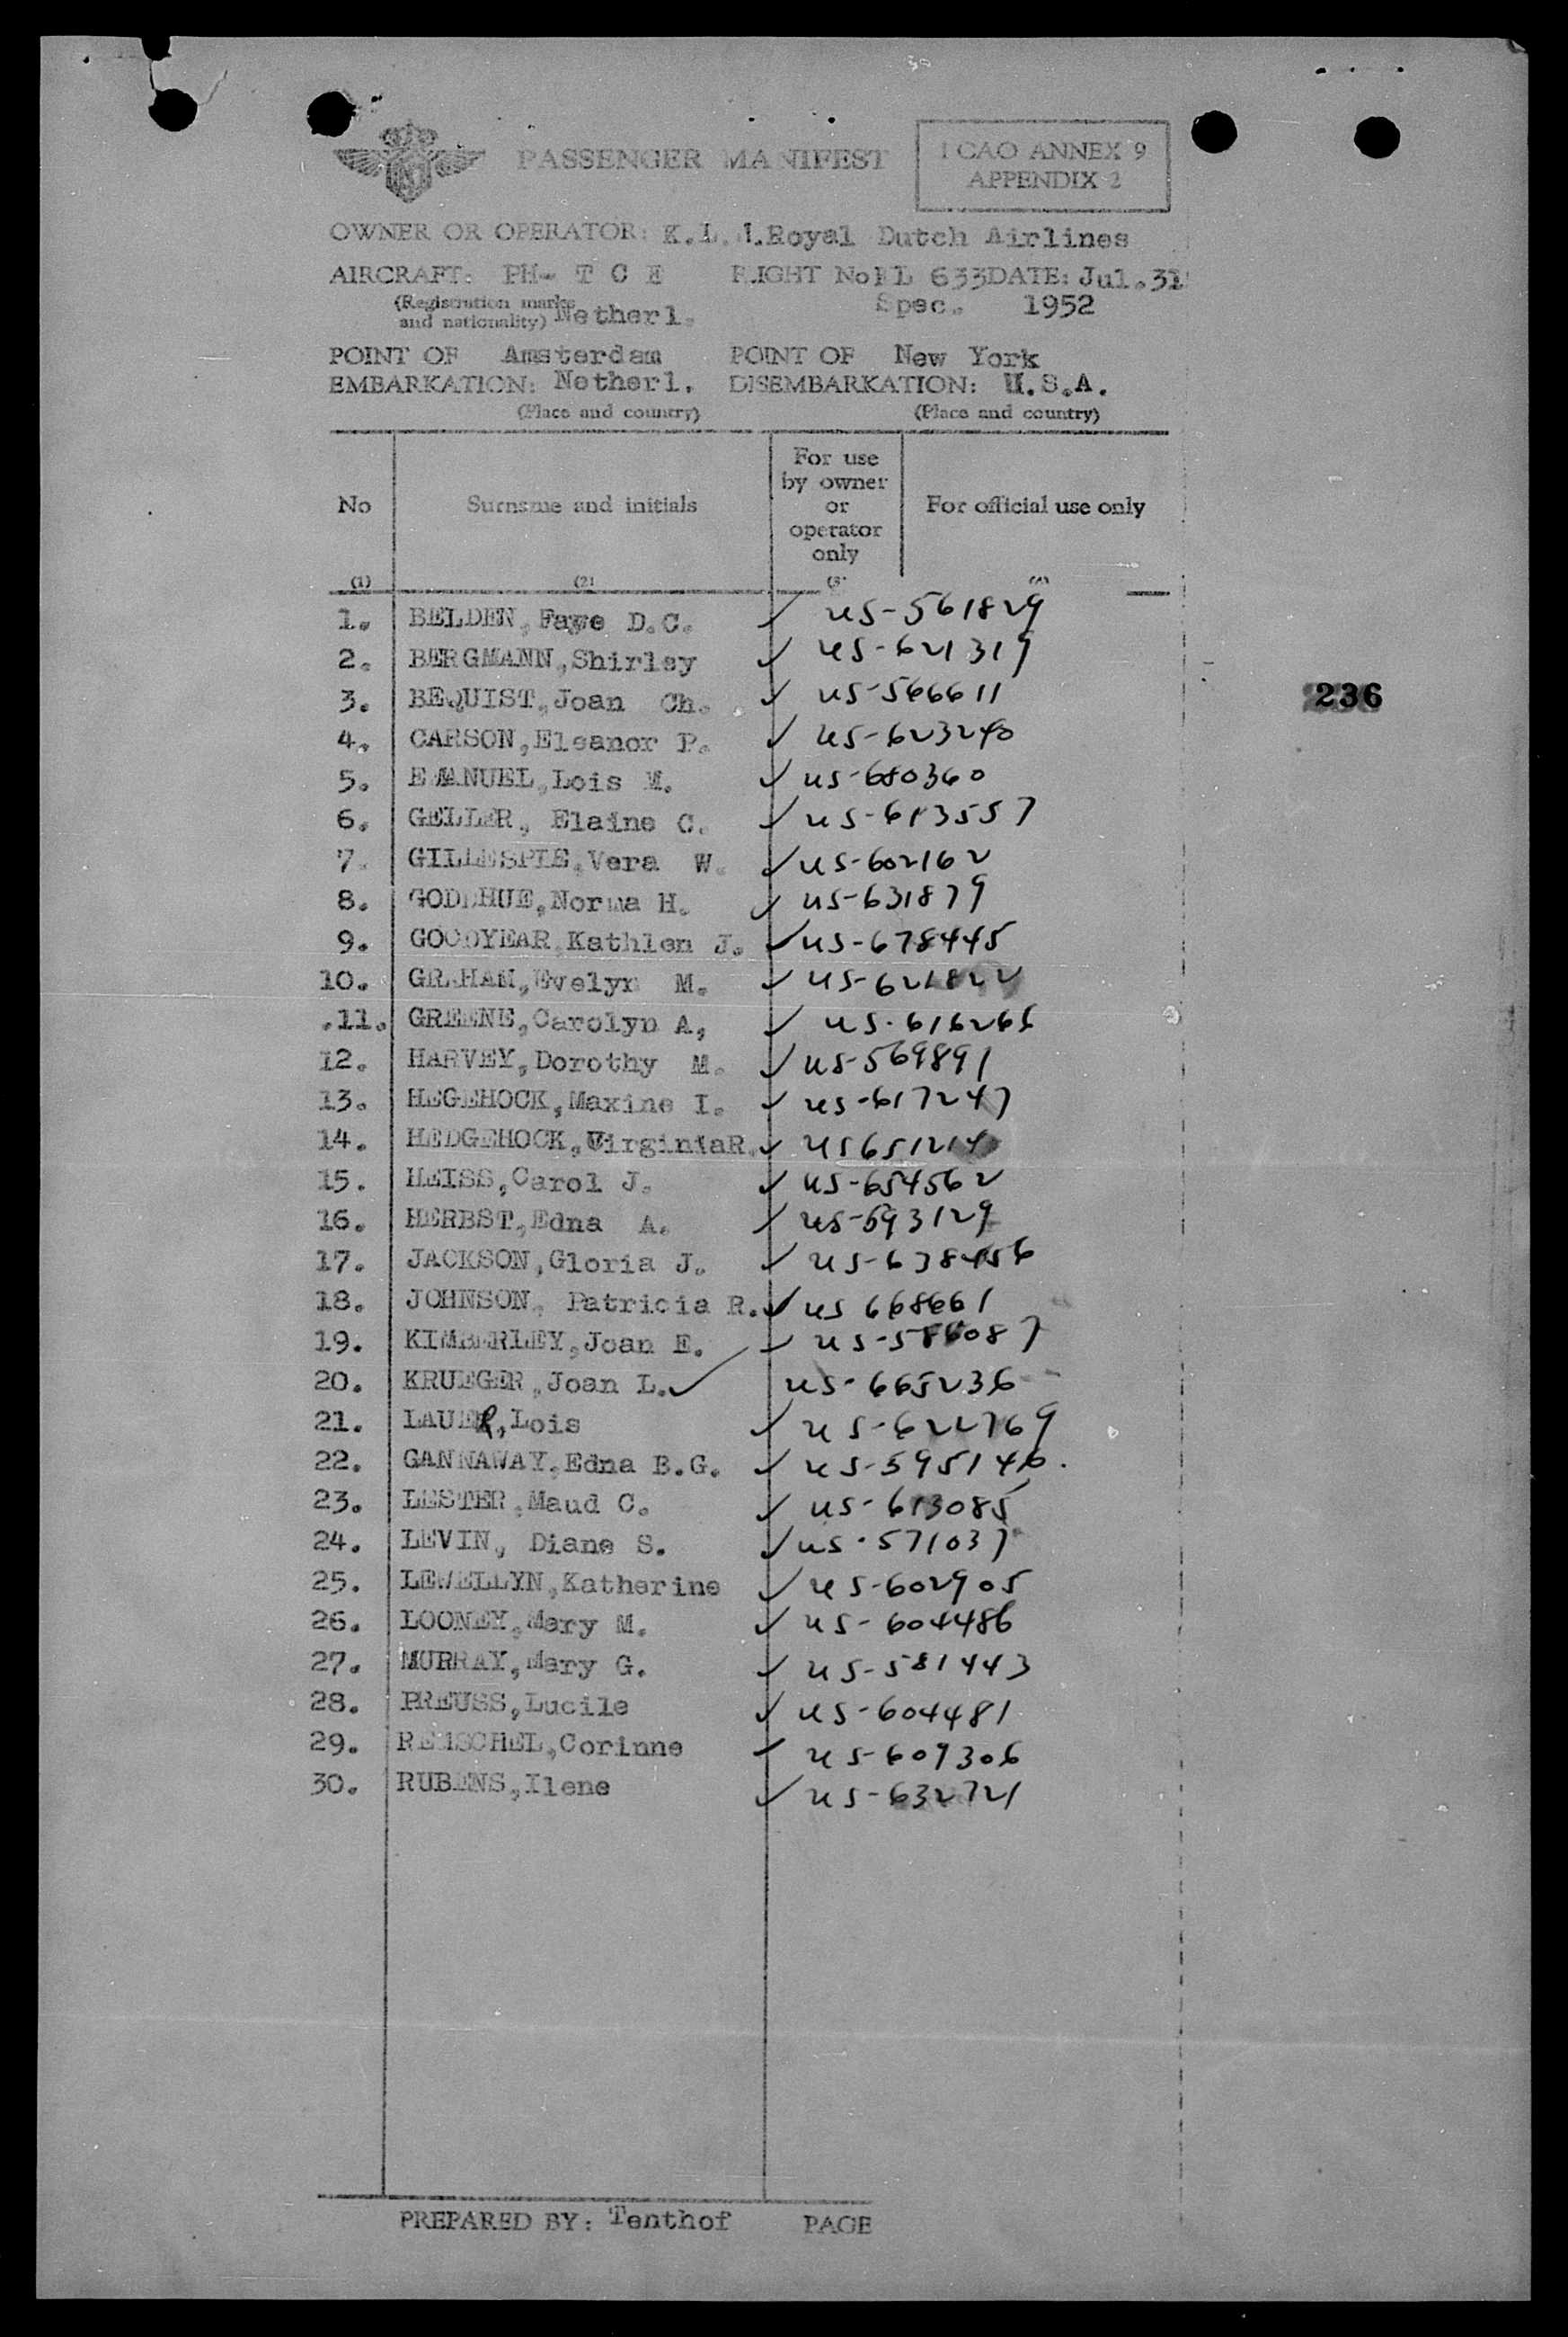 PASSENGER MANIFEST
ICAO ANNEX 9
APPENDIX 2
OWNER OR OPERATOR: K.L.M. Royal Dutch Airlines
AIRCRAFT: PH- T C E FLIGHT No KL 633 DATE: Jul. 31
(Registration marks and nationality) Netherl. Spec. 1952
POINT OF Amsterdam POINT OF New York
EMBARKATION: Netherl. DISEMBARKATION: U.S.A.
(Place and country) (Place and country)
No Surname and initials For use by owner or operator only For official use only
(1) (2)
1. BELDEN, Faye D.C. ✓ US-561829
2. BERGMANN, Shirley ✓ US-621319
3. BEQUIST, Joan Ch. ✓ US-566611
4. CARSON, Eleanor P. ✓ US-623240
5. EMANUEL, Lois M. ✓ US-680360
6. GELLER, Elaine C. ✓ US-613557
7. GILLESPIE, Vera W. ✓ US-602162
8. GODEHUE, Norma H. ✓ US-631879
9. GOODYEAR, Kathlen J. ✓ US-678445
10. GRAHAM, Evelyn M. ✓ US-621822
11. GREENE, Carolyn A, ✓ US-616266
12. HARVEY, Dorothy M. ✓ US-569891
13. HEGEHOCK, Maxine I. ✓ US-617247
14. HEDGEHOCK, Virginia R. ✓ US 651214
15. HEISS, Carol J. ✓ US-654562
16. HERBST, Edna A. ✓ US-593129
17. JACKSON, Gloria J. ✓ US-638456
18. JOHNSON, Patricia R. ✓ US 668661
19. KIMBERLEY, Joan E. ✓ US-586087
20. KRUEGER, Joan L. ✓ US-665236
21. LAUER, Lois ✓ US-622769
22. GANNAWAY, Edna B.G. ✓ US-595146.
23. LESTER, Maud C. ✓ US-613085
24. LEVIN, Diane S. ✓ US-571037
25. LEWELLYN, Katherine ✓ US-602905
26. LOONEY, Mary M. ✓ US-604486
27. MURRAY, Mary G. ✓ US-581443
28. PREUSS, Lucile ✓ US-604481
29. REUSCHEL, Corinne ✓ US-609306
30. RUBENS, Ilene ✓ US-632721
236
PREPARED BY: Tenthof PAGE